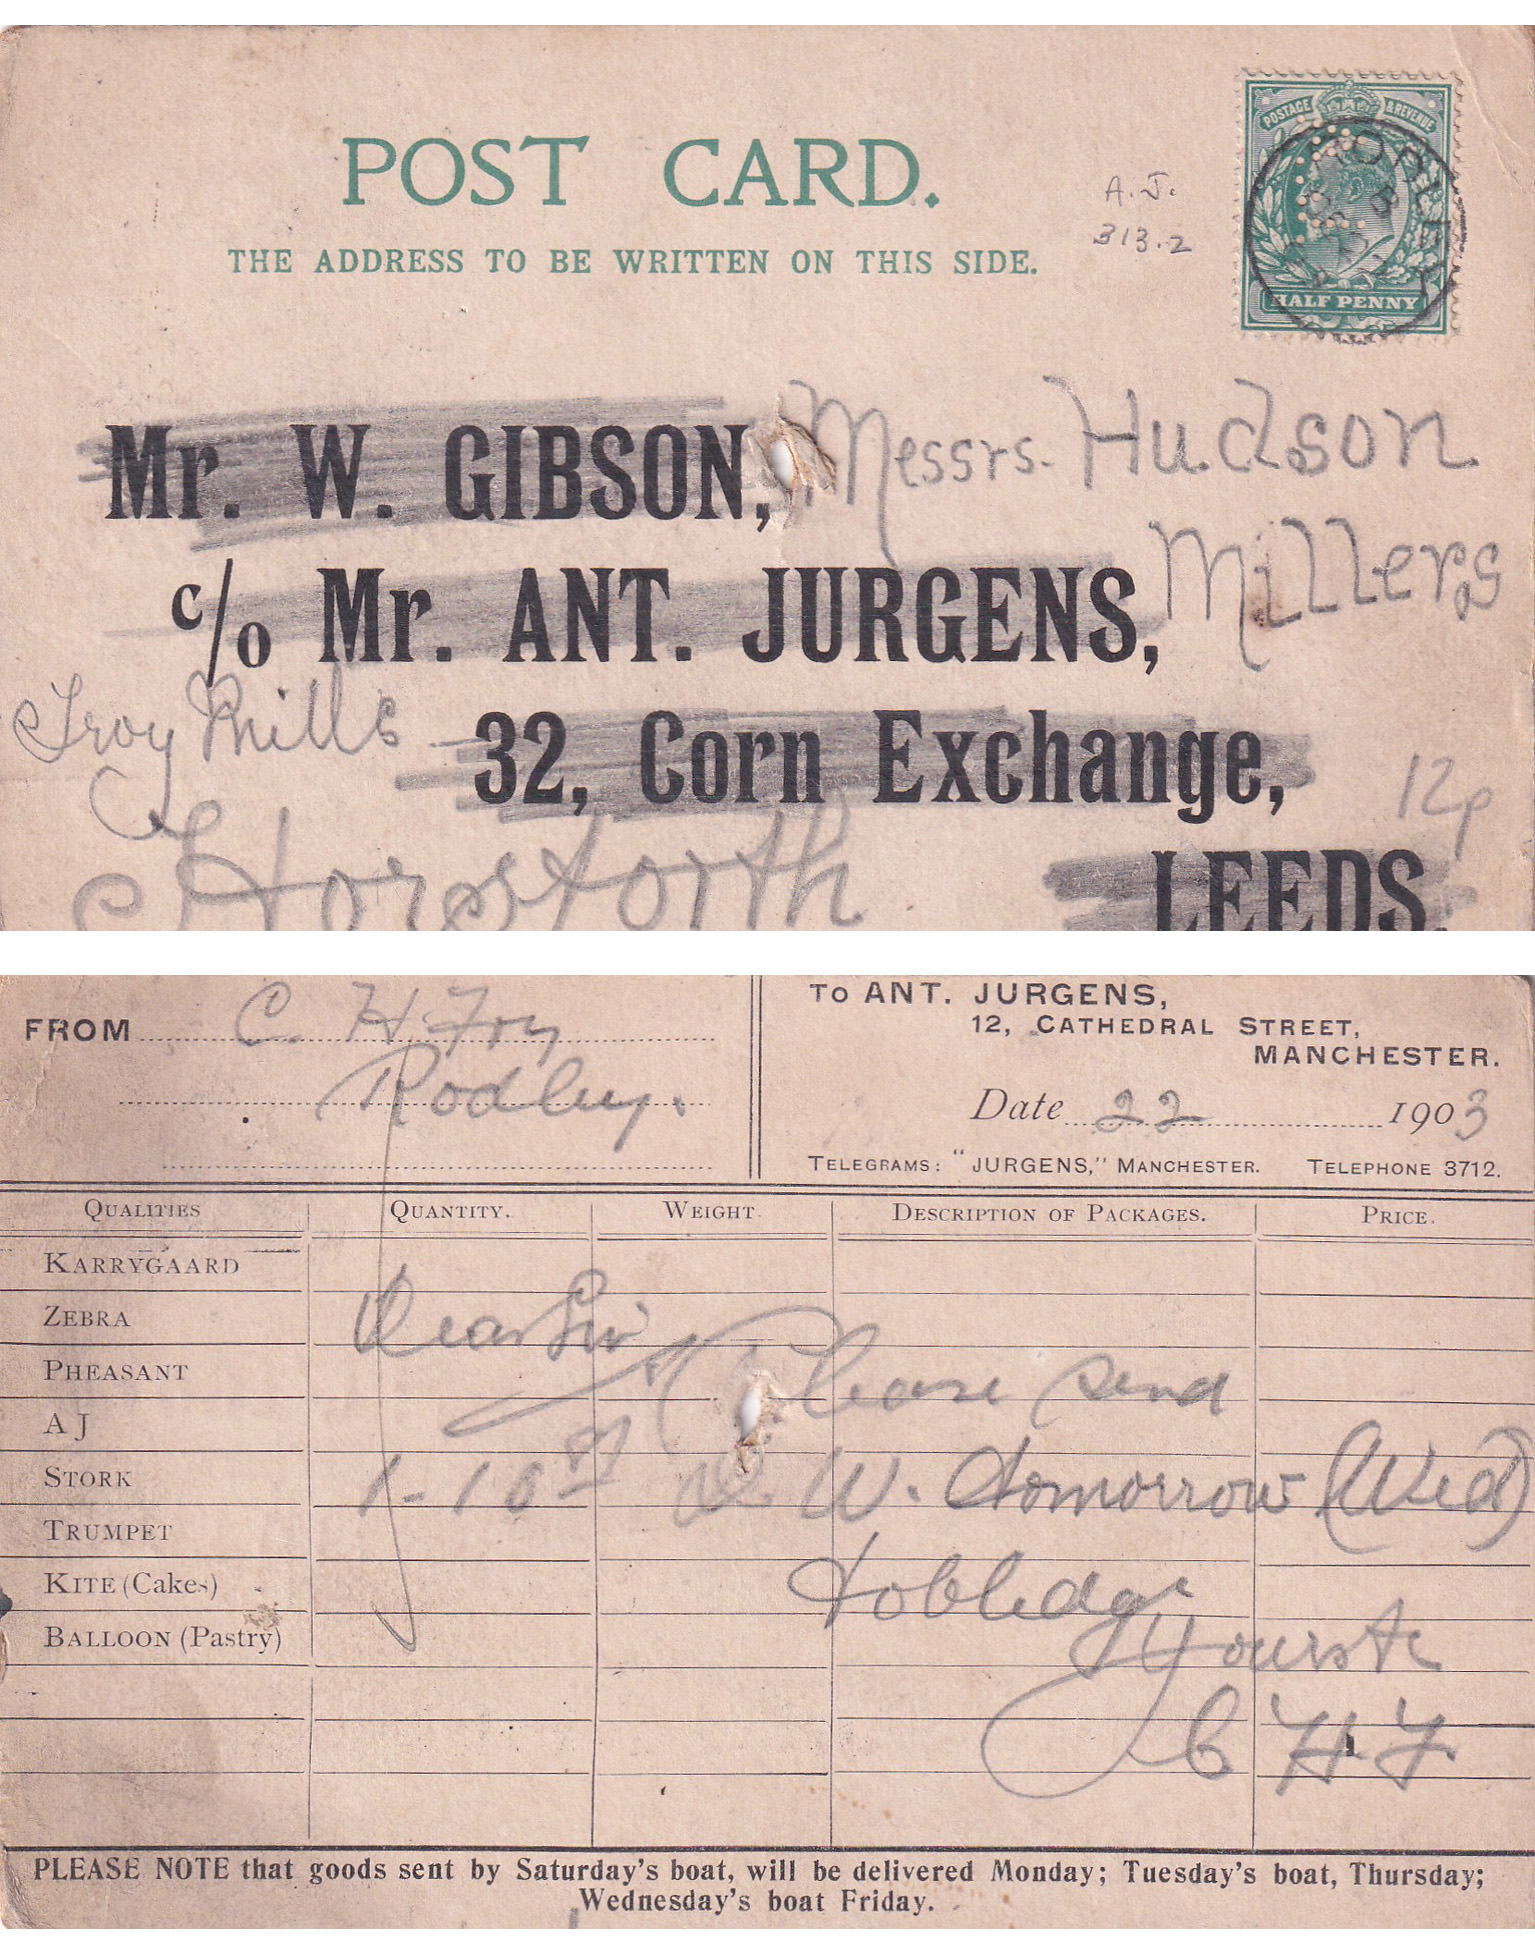 POST CARD.
THE ADDRESS TO BE WRITTEN ON THIS SIDE.
A.J.
313.2
POSTAGE & REVENUE
HALF PENNY
Mr. W. GIBSON, Messrs. Hudson
Millers
c/o Mr. ANT. JURGENS,
Troy Mills
32, Corn Exchange,
12p
Horsforth
LEEDS.
FROM C. H. Fry
Rodley.
To ANT. JURGENS,
12, CATHEDRAL STREET,
MANCHESTER.
Date 22 1903
TELEGRAMS: "JURGENS," MANCHESTER. TELEPHONE 3712.
QUALITIES QUANTITY. WEIGHT. DESCRIPTION OF PACKAGES. PRICE.
KARRYGAARD
ZEBRA
Dear Sir
PHEASANT
Please send
A J
STORK
1-10 W. tomorrow (Wed)
TRUMPET
KITE (Cakes)
to bledge
BALLOON (Pastry)
Yours tr
C H F.
PLEASE NOTE that goods sent by Saturday's boat, will be delivered Monday; Tuesday's boat, Thursday;
Wednesday's boat Friday.